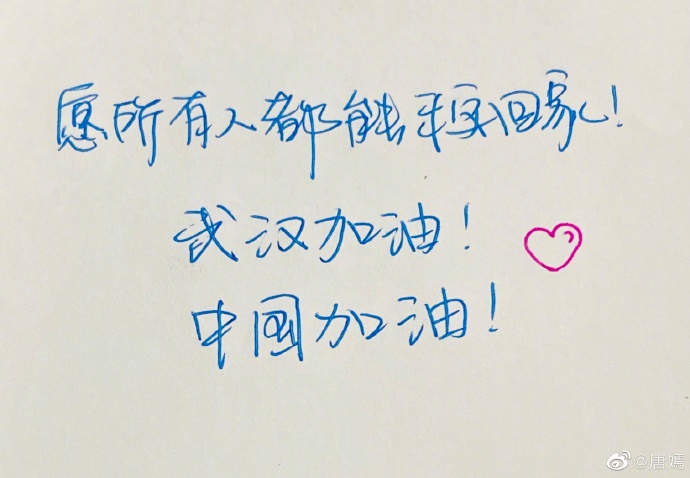 愿所有人都能平安回家!
武汉加油!
中國加油!
@唐嫣